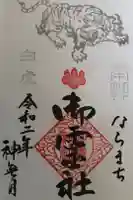 白虎
ならまち
御霊社
令和二年
神無月